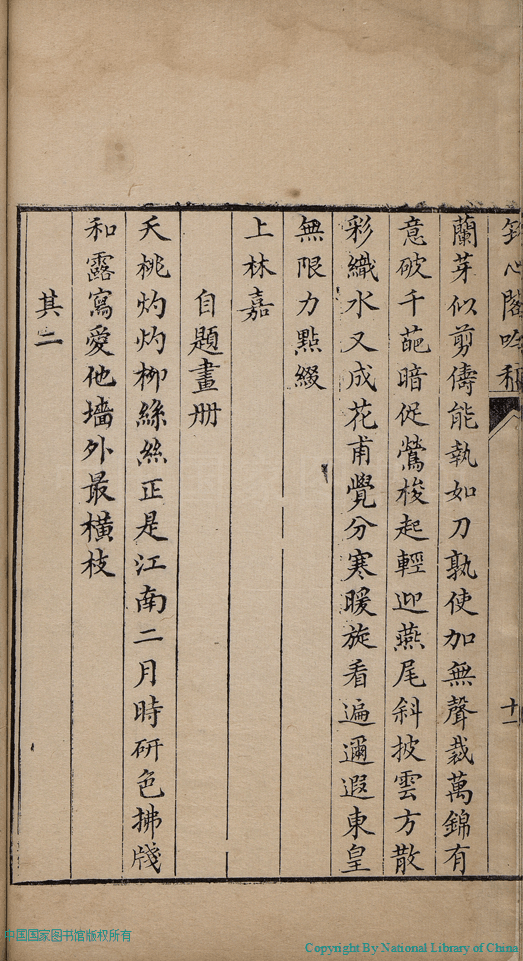 鈐心閣吟稿
十一
蘭芽似剪儔能執如刀孰使加無聲裁萬錦有
意破千葩暗促鶯梭起輕迎燕尾斜披雲方散
彩織水又成花甫覺分寒暖旋看遍邇遐東皇
無限力點綴
上林嘉
自題畫册
夭桃灼灼柳絲絲正是江南二月時研色拂牋
和露寫愛他墻外最橫枝
其二
中国国家图书馆版权所有
Copyright By National Library of China